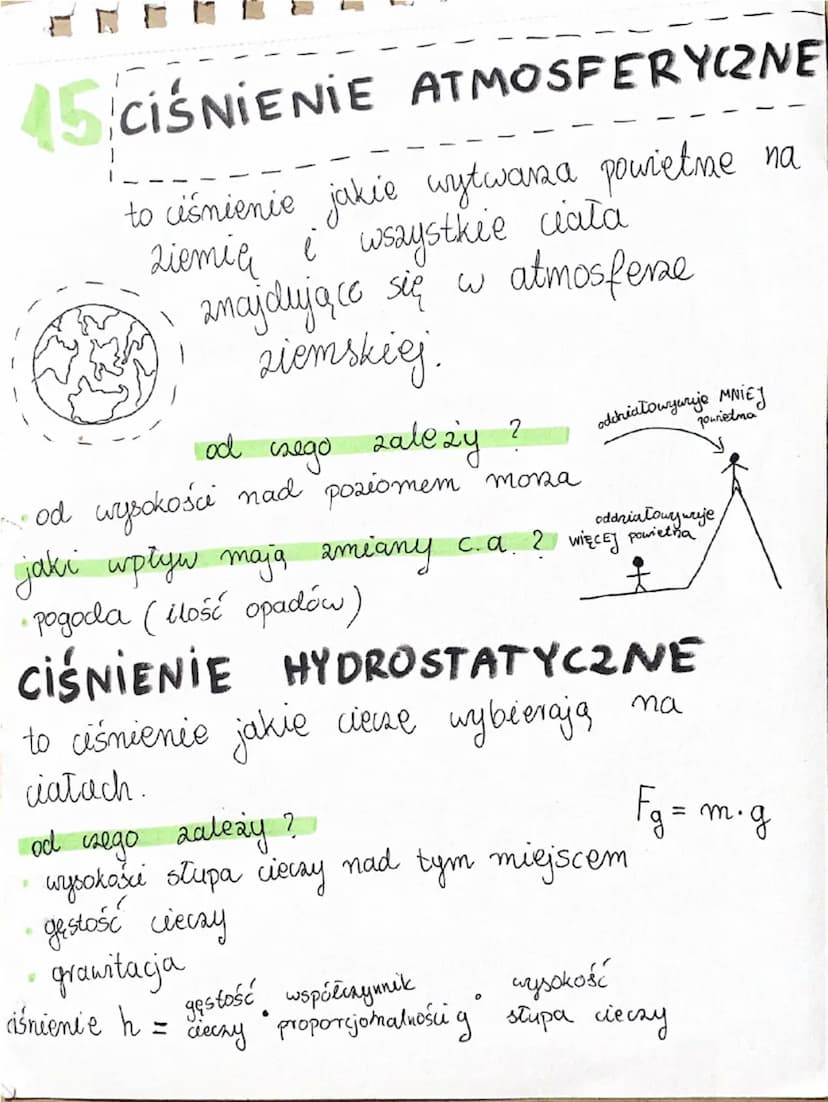 15 CIŚNIENIE ATMOSFERYCZNE
to ciśnienie jakie wytwarza powietrze na
ziemię i wszystkie ciała
znajdujące się w atmosferze
ziemskiej.
oddziaływuje MNIEJ
powietrza
od czego zależy?
• od wysokości nad poziomem morza
oddziaływuje
WIĘCEJ powietrza
jaki wpływ mają zmiany c.a.?
• pogoda (ilość opadów)
CIŚNIENIE HYDROSTATYCZNE
to ciśnienie jakie ciecze wybierają na
ciałach.
Fg = m·g
od czego zależy?
• wysokości słupa cieczy nad tym miejscem
• gęstość cieczy
• grawitacja
ciśnienie h = gęstość cieczy · współczynnik proporcjonalności g · wysokość słupa cieczy